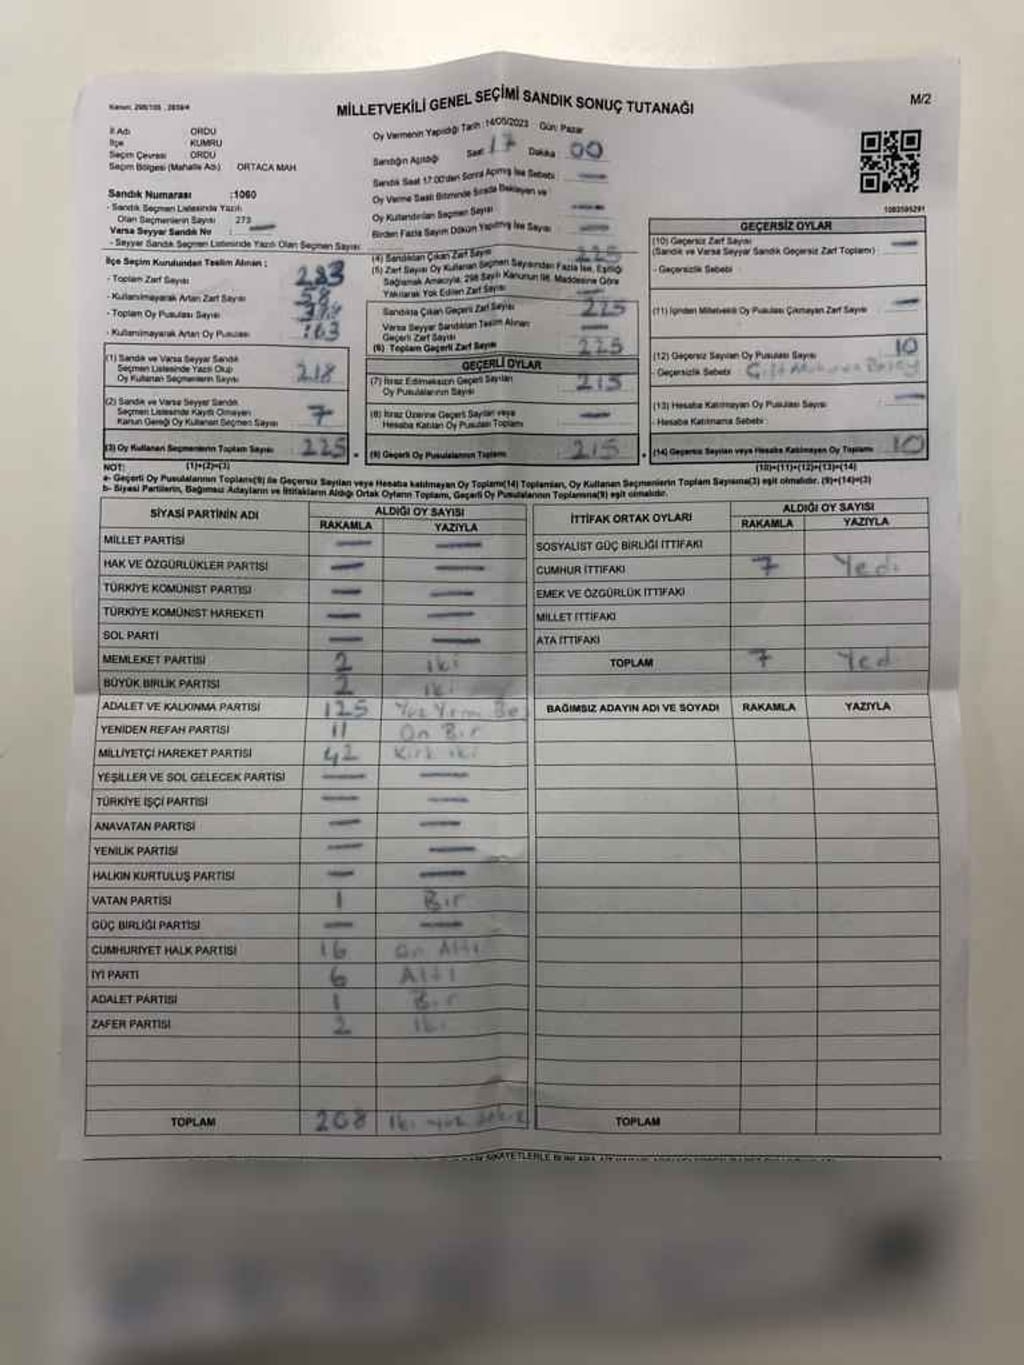 Kanun: 298/105 , 2839/4
MİLLETVEKİLİ GENEL SEÇİMİ SANDIK SONUÇ TUTANAĞI
M/2
İl Adı : ORDU
İlçe : KUMRU
Seçim Çevresi : ORDU
Seçim Bölgesi (Mahalle Adı) : ORTACA MAH
Sandık Numarası :1060
- Sandık Seçmen Listesinde Yazılı
Olan Seçmenlerin Sayısı : 273
Varsa Seyyar Sandık No : —
- Seyyar Sandık Seçmen Listesinde Yazılı Olan Seçmen Sayısı
Oy Vermenin Yapıldığı Tarih :14/05/2023 Gün: Pazar
Sandığın Açıldığı Saat 17 Dakika 00
Sandık Saat 17:00'den Sonra Açılmış İse Sebebi : —
Oy Verme Saati Bitiminde Sırada Bekleyen ve
Oy Kullandırılan Seçmen Sayısı : —
Birden Fazla Sayım Döküm Yapılmış İse Sayısı : —
1083595291
İlçe Seçim Kurulundan Teslim Alınan ;
- Toplam Zarf Sayısı : 283
- Kullanılmayarak Artan Zarf Sayısı : 58
- Toplam Oy Pusulası Sayısı
- Kullanılmayarak Artan Oy Pusulası : 163
(1) Sandık ve Varsa Seyyar Sandık
Seçmen Listesinde Yazılı Olup
Oy Kullanan Seçmenlerin Sayısı 218
(2) Sandık ve Varsa Seyyar Sandık
Seçmen Listesinde Kaydı Olmayan
Kanun Gereği Oy Kullanan Seçmen Sayısı 7
(3) Oy Kullanan Seçmenlerin Toplam Sayısı 225
(4) Sandıktan Çıkan Zarf Sayısı 225
(5) Zarf Sayısı Oy Kullanan Seçmen Sayısından Fazla İse, Eşitliği
Sağlamak Amacıyla, 298 Sayılı Kanunun 98. Maddesine Göre
Yakılarak Yok Edilen Zarf Sayısı —
Sandıkta Çıkan Geçerli Zarf Sayısı 225
Varsa Seyyar Sandıktan Teslim Alınan
Geçerli Zarf Sayısı —
(6) Toplam Geçerli Zarf Sayısı 225
GEÇERLİ OYLAR
(7) İtiraz Edilmeksizin Geçerli Sayılan
Oy Pusulalarının Sayısı 215
(8) İtiraz Üzerine Geçerli Sayılan veya
Hesaba Katılan Oy Pusulası Toplamı —
(9) Geçerli Oy Pusulalarının Toplamı 215
GEÇERSİZ OYLAR
(10) Geçersiz Zarf Sayısı —
(Sandık ve Varsa Seyyar Sandık Geçersiz Zarf Toplamı)
- Geçersizlik Sebebi :
(11) İçinden Milletvekili Oy Pusulası Çıkmayan Zarf Sayısı —
(12) Geçersiz Sayılan Oy Pusulası Sayısı 10
- Geçersizlik Sebebi : Çift
(13) Hesaba Katılmayan Oy Pusulası Sayısı —
- Hesaba Katılmama Sebebi :
(14) Geçersiz Sayılan veya Hesaba Katılmayan Oy Toplamı 10
NOT: (1)+(2)=(3)
(10)+(11)+(12)+(13)=(14)
a- Geçerli Oy Pusulalarının Toplamı(9) ile Geçersiz Sayılan veya Hesaba katılmayan Oy Toplamı(14) Toplamları, Oy Kullanan Seçmenlerin Toplam Sayısına(3) eşit olmalıdır. (9)+(14)=(3)
b- Siyasi Partilerin, Bağımsız Adayların ve İttifakların Aldığı Ortak Oyların Toplamı, Geçerli Oy Pusulalarının Toplamına(9) eşit olmalıdır.
SİYASİ PARTİNİN ADI ALDIĞI OY SAYISI
RAKAMLA YAZIYLA
MİLLET PARTİSİ — —
HAK VE ÖZGÜRLÜKLER PARTİSİ — —
TÜRKİYE KOMÜNİST PARTİSİ — —
TÜRKİYE KOMÜNİST HAREKETİ — —
SOL PARTİ — —
MEMLEKET PARTİSİ 2 iki
BÜYÜK BİRLİK PARTİSİ 2 iki
ADALET VE KALKINMA PARTİSİ 125 Yüz Yirmi Beş
YENİDEN REFAH PARTİSİ 11 On Bir
MİLLİYETÇİ HAREKET PARTİSİ 42 Kırk iki
YEŞİLLER VE SOL GELECEK PARTİSİ — —
TÜRKİYE İŞÇİ PARTİSİ — —
ANAVATAN PARTİSİ — —
YENİLİK PARTİSİ — —
HALKIN KURTULUŞ PARTİSİ — —
VATAN PARTİSİ 1 Bir
GÜÇ BİRLİĞİ PARTİSİ — —
CUMHURİYET HALK PARTİSİ 16 On Altı
İYİ PARTİ 6 Altı
ADALET PARTİSİ 1 Bir
ZAFER PARTİSİ 2 İki
TOPLAM 208 İki yüz sekiz
İTTİFAK ORTAK OYLARI ALDIĞI OY SAYISI
RAKAMLA YAZIYLA
SOSYALİST GÜÇ BİRLİĞİ İTTİFAKI
CUMHUR İTTİFAKI 7 Yedi
EMEK VE ÖZGÜRLÜK İTTİFAKI
MİLLET İTTİFAKI
ATA İTTİFAKI
TOPLAM 7 Yedi
BAĞIMSIZ ADAYIN ADI VE SOYADI RAKAMLA YAZIYLA
TOPLAM